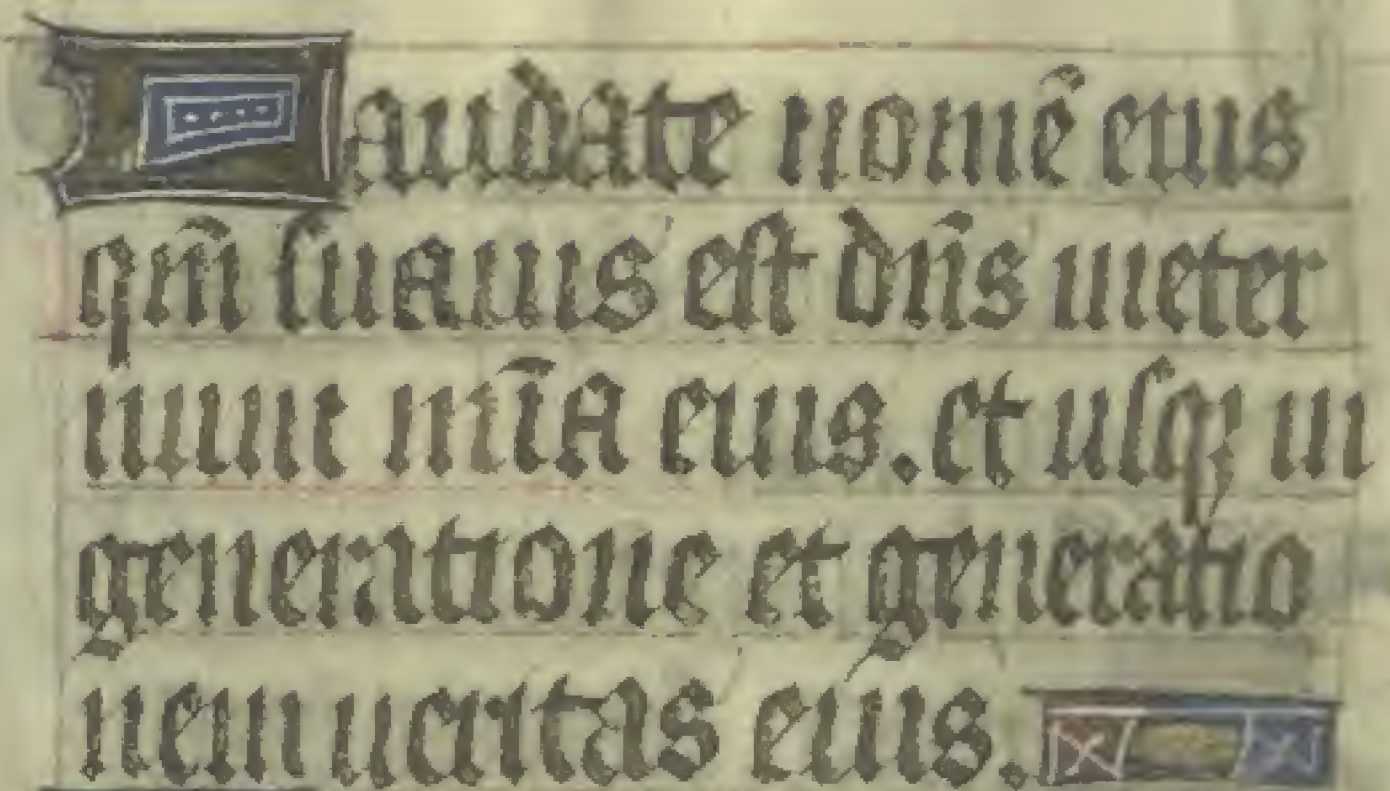 Laudate nomē eius
qm̄ suauis est dn̄s ineter
nnm mīa eius. et usqꝫ in
generatione et generatio
nem ueritas eius.